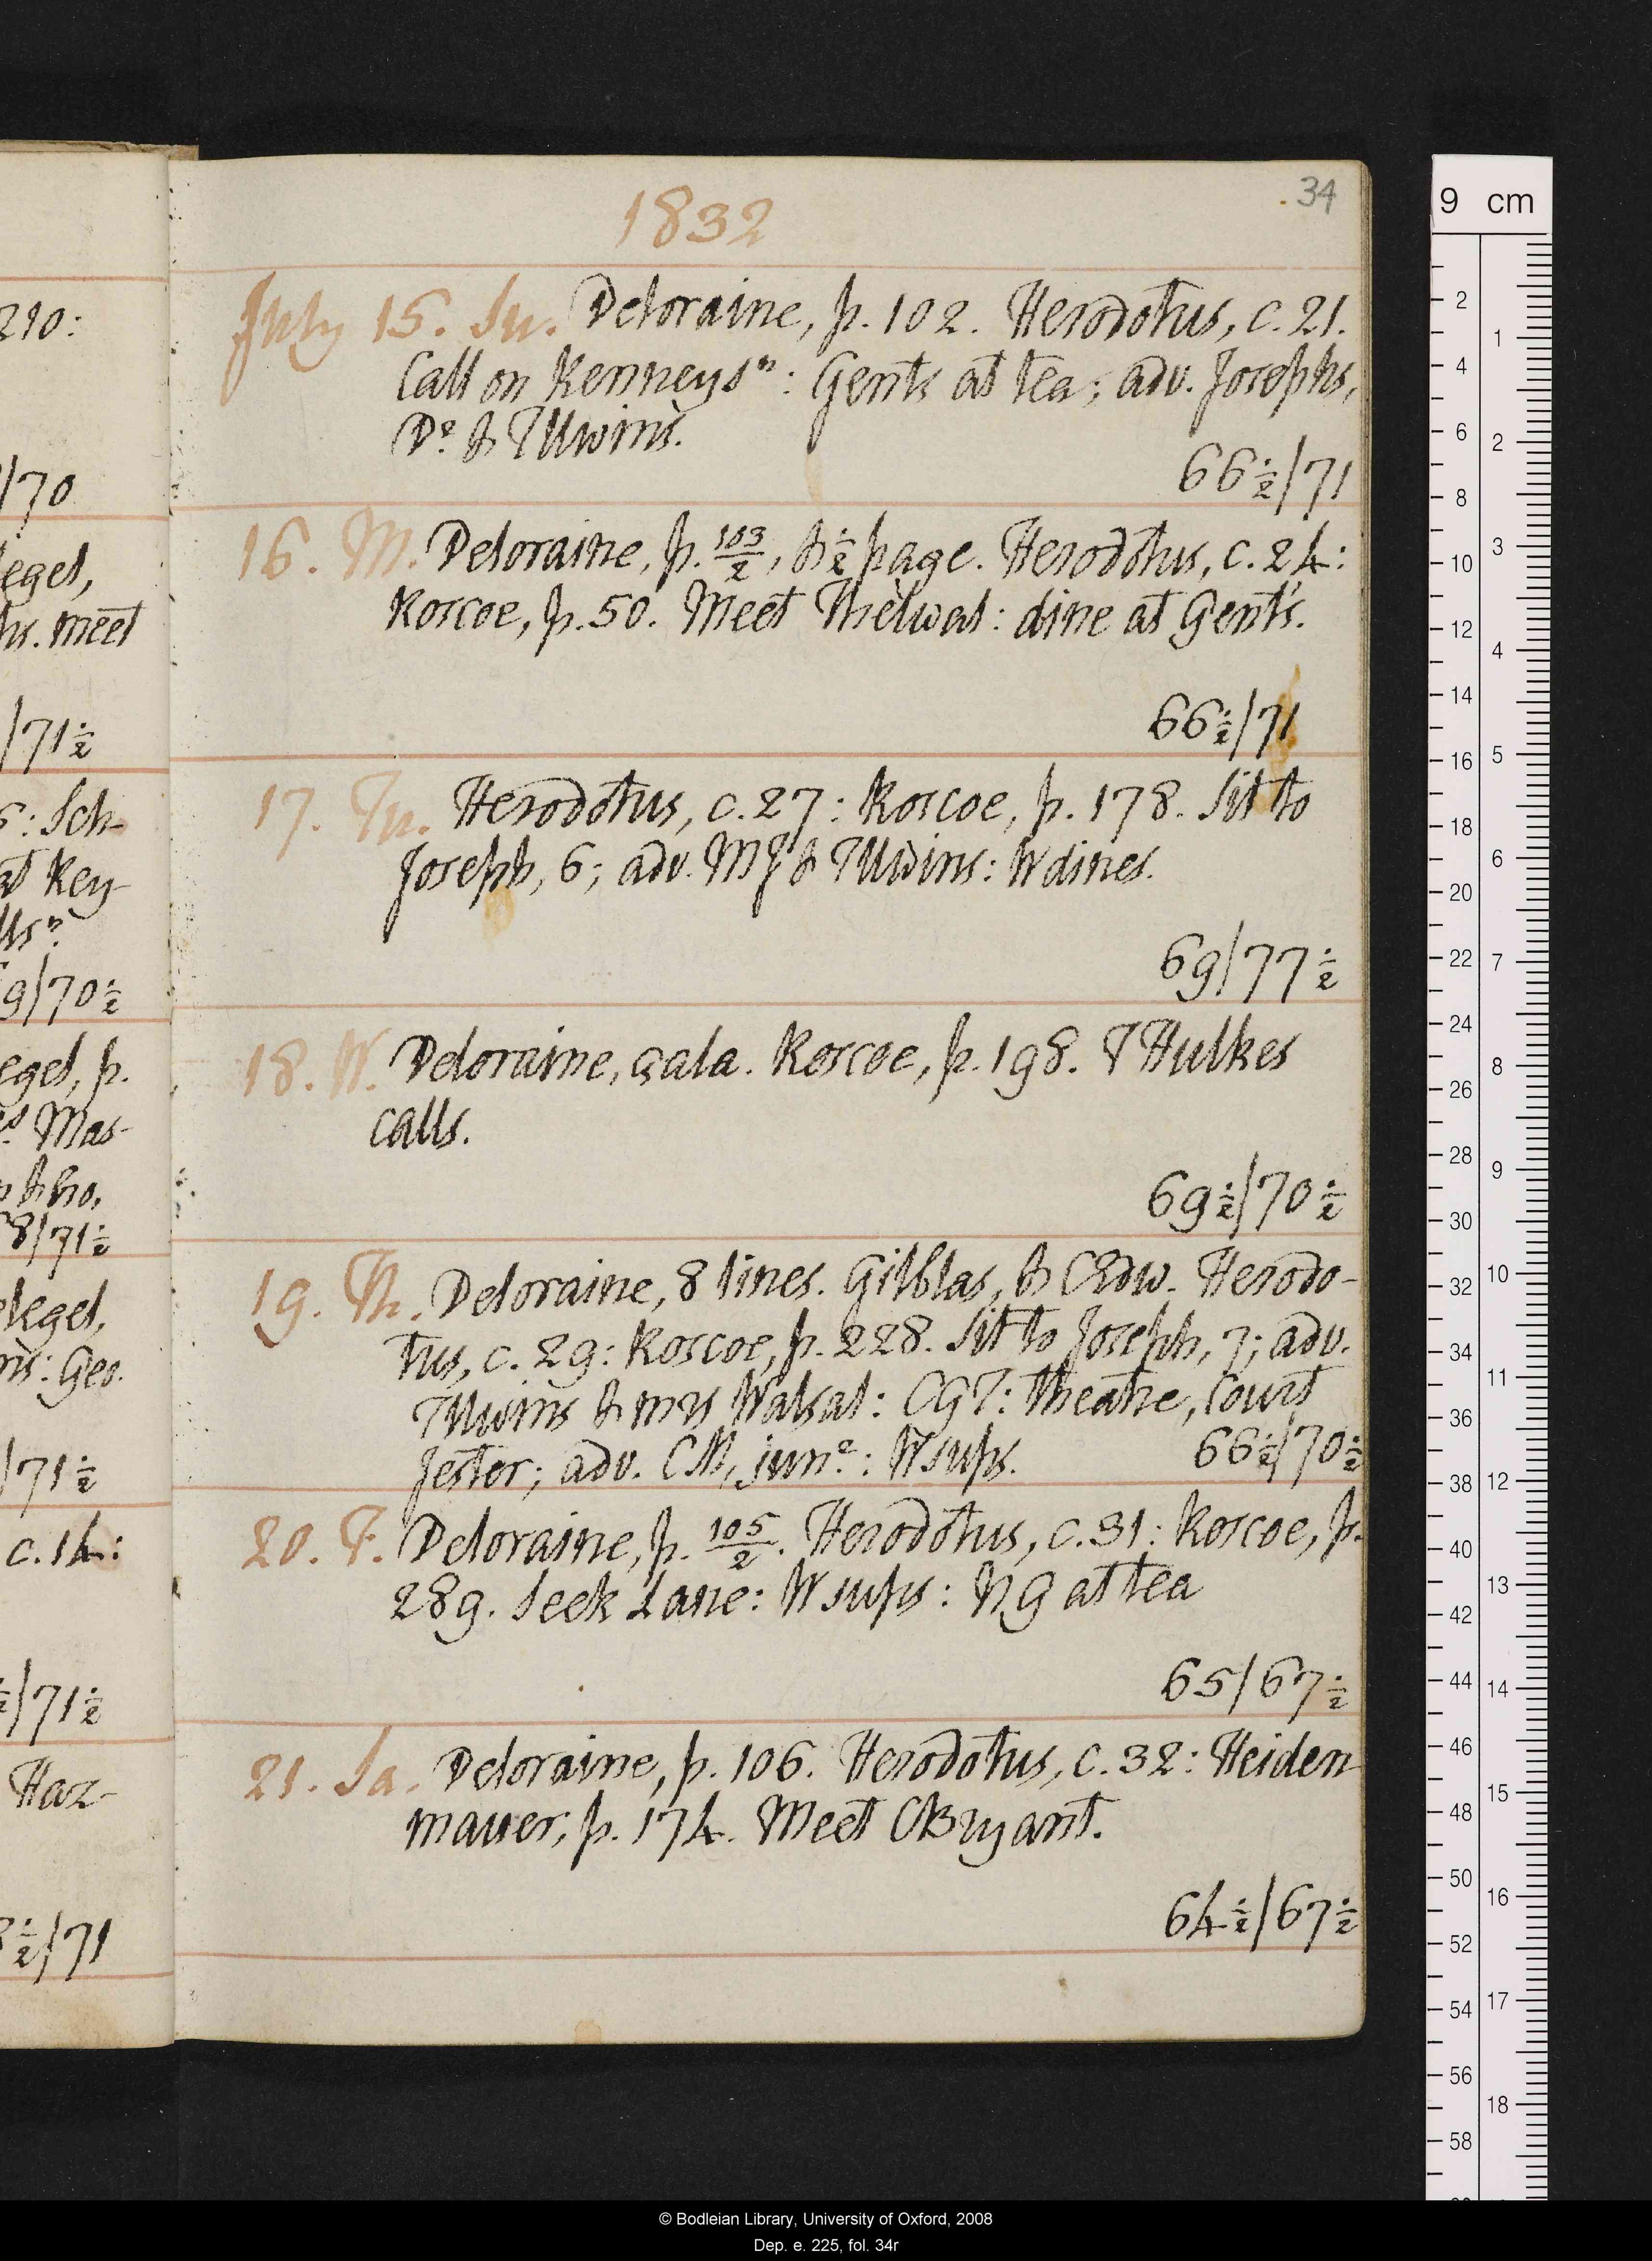 34
1832
July 15. Su. Deloraine, p. 102. Herodotus, c. 21.
Call on Kenneys n: Gents at tea; adv. Josephs,
Do & T Uwins.
66½/71
16. M. Deloraine, p. 103/2, & ½ page. Herodotus, c. 24:
Roscoe, p. 50. Meet Thelwal: dine at Gent's.
66½/71
17. Tu. Herodotus, c. 27: Roscoe, p. 178. Sit to
Joseph, 6; adv. MJ & T Uwins: W dines.
69/77½
18. W. Deloraine, çala. Roscoe, p. 198. T Hulkes
calls.
69½/70½
19. Th. Deloraine, 8 lines. Gilblas, & CEdw. Herodo-
tus, c. 29: Roscoe, p. 228. Sit to Joseph, 7; adv.
T Uwins & mrs Walsal: CGT: theatre, Court
Jester; adv. CM, junr: W sups. 66½/70½
20. F. Deloraine, p. 105/2. Herodotus, c. 31: Roscoe, p.
289. Seek Lane: W sups: NG at tea
65/67½
21. Sa. Deloraine, p. 106. Herodotus, c. 32: Heiden-
mauer, p. 174. Meet C Bryant.
64½/67½
210:
/70
egel,
hs. meet
/71½
: Sch-
at Key-
9/70½
egel, p.
Mas-
& bro.
8/71½
legel,
Geo.
/71½
c. 14:
/71½
Haz-
½/71
9 cm
2
4
6
8
10
12
14
16
18
20
22
24
26
28
30
32
34
36
38
40
42
44
46
48
50
52
54
56
58
1
2
3
4
5
6
7
8
9
10
11
12
13
14
15
16
17
18
© Bodleian Library, University of Oxford, 2008
Dep. e. 225, fol. 34r